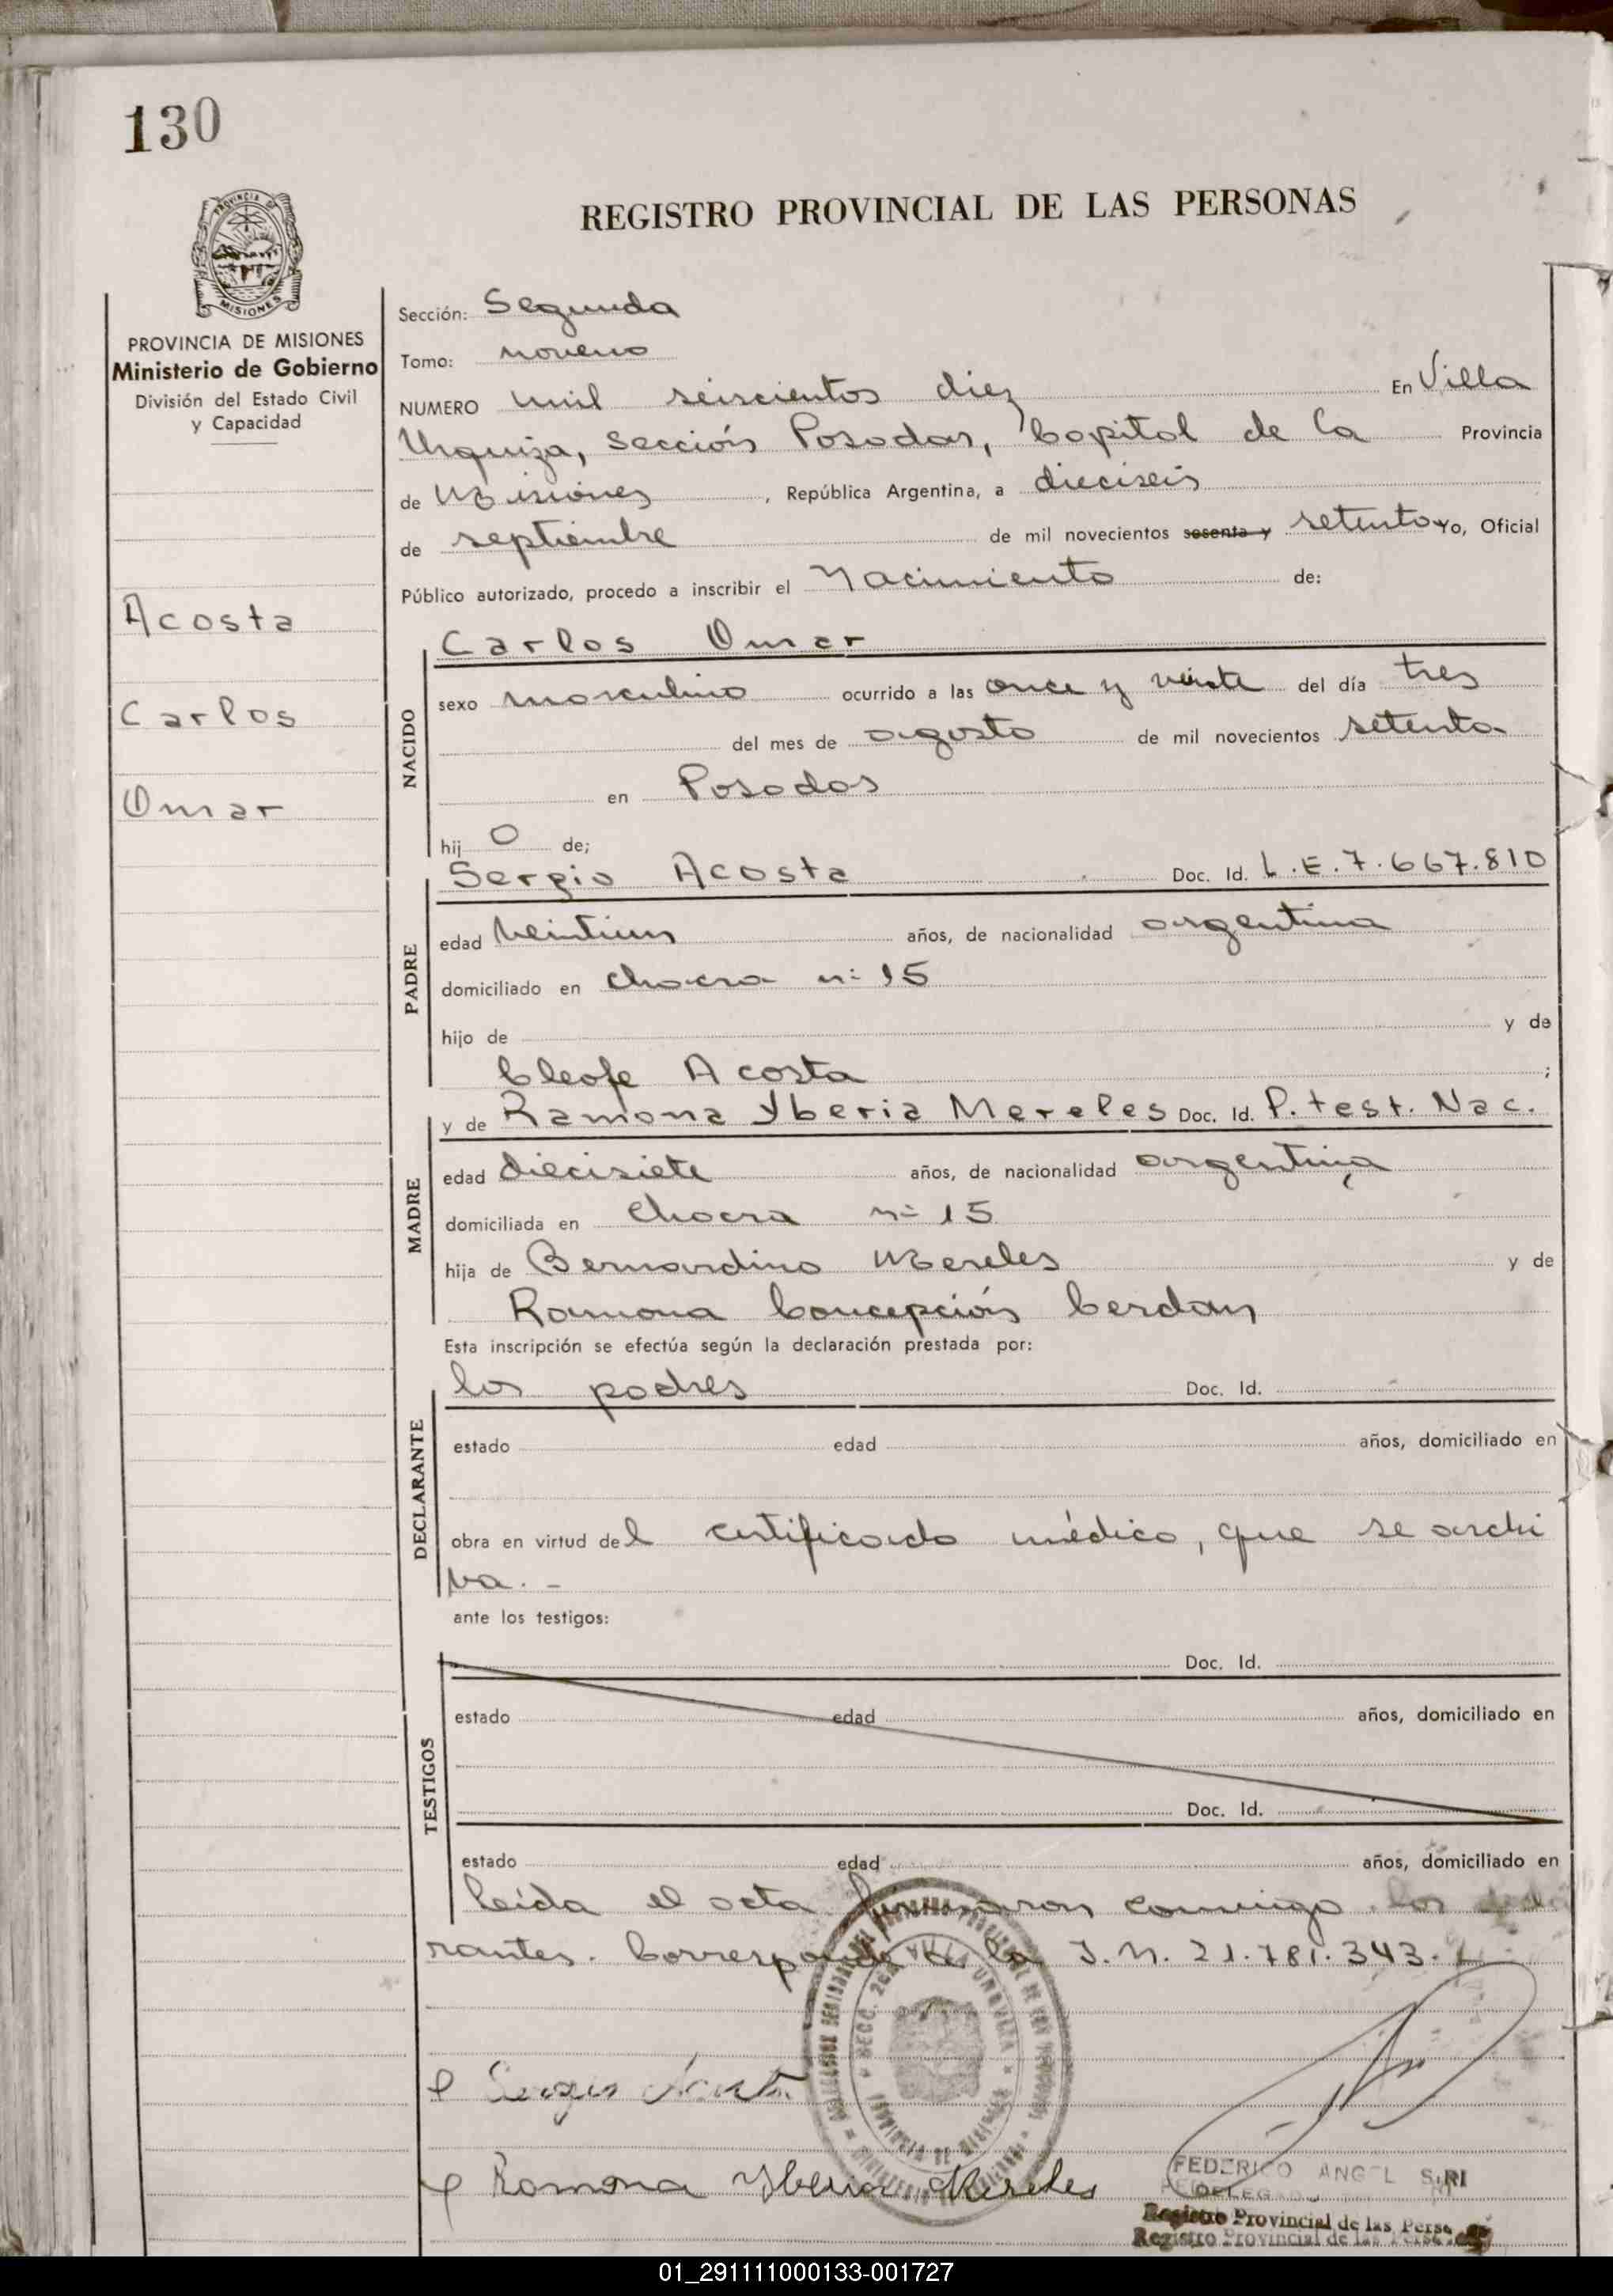 130
REGISTRO PROVINCIAL DE LAS PERSONAS
MISIONES
PROVINCIA DE MISIONES
Ministerio de Gobierno
División del Estado Civil
y Capacidad
Acosta
Carlos
Omar
Sección: Segunda
Tomo: noveno
NUMERO mil seiscientos diez En Villa
Urquiza, sección Posadas, Capital de la Provincia
de Misiones, República Argentina, a dieciseis
de septiembre de mil novecientos sesenta y setenta Yo, Oficial
Público autorizado, procedo a inscribir el Nacimiento de:
NACIDO
Carlos Omar
sexo masculino ocurrido a las once y veinte del día tres
del mes de agosto de mil novecientos setenta
en Posadas
hij o de;
PADRE
Sergio Acosta Doc. Id. L.E.7.667.810
edad veintiun años, de nacionalidad argentina
domiciliado en chacra nº 15
hijo de y de
Cleofe Acosta ;
MADRE
y de Ramona Yberia Mereles Doc. Id. P. test. Nac.
edad diecisiete años, de nacionalidad argentina
domiciliada en chacra nº 15
hija de Bernardino Mereles y de
Ramona Concepción Cerdan
Esta inscripción se efectúa según la declaración prestada por:
DECLARANTE
los padres Doc. Id.
estado edad años, domiciliado en
obra en virtud del certificado médico, que se archi
va. -
ante los testigos:
TESTIGOS
Doc. Id.
estado edad años, domiciliado en
Doc. Id.
estado edad años, domiciliado en
Leída el acta firmaron conmigo los decla
rantes. Corresponde a la I.N. 21.781.343.
Sergio Acosta
Ramona Yberia Mereles
SECC. 2da
PROVINCIA DE MISIONES
FEDERICO ANGEL SIRI
DELEGADO
Registro Provincial de las Perso
Registro Provincial de las Perso
01_291111000133-001727